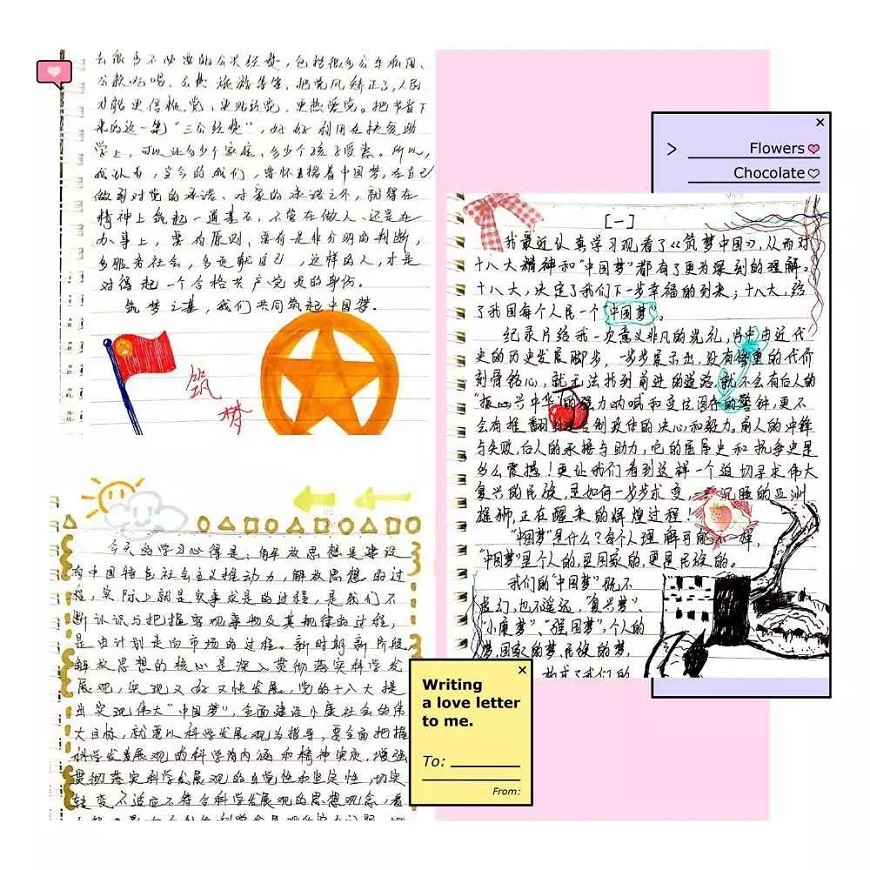 去很多不必要的公共经费，包括很多公车私用、
公款吃喝、公费旅游等等，把党风矫正了，人民
才能更信任党、更拥护党、更热爱党。把节省下
来的这一笔“三公经费”，好好利用在扶贫助
学上，可以让多少个家庭、多少个孩子受惠。所以，
我认为，当今的我们，要怀揣着中国梦，在自己
做到对党的承诺、对家的承诺之外，就得在
精神上筑起一道基石，不管在做人、还是在
办事上，要有原则、要有是非分明的判断，
多服务社会，多贡献自己，这样的人，才是
对得起一个合格共产党员的身份。
筑梦之基，我们共同筑起中国梦。
筑
梦
Flowers
Chocolate
[一]
我最近认真学习观看了《筑梦中国》，从而对
十八大精神和“中国梦”都有了更为深刻的理解。
十八大，决定了我们下一步幸福的到来；十八大，给
了我国每个人民一个“中国梦”。
纪录片给我一次意义非凡的洗礼，片中由近代
史的历史发展脚步，一步步展示出，没有惨重的代价
刻骨铭心，就无法找到前进的道路，就不会有后人的
“振兴中华”的强力呐喊和
会有推翻 制政体的决心和毅力。前人的冲锋
与失败，后人的承接与助力，它的屈辱史和抗争史是
多么震撼！更让我们看到这样一个迫切寻求伟大
复兴的民族，是如何一步步求变， 沉睡的亚洲
雄狮，正在醒来的辉煌过程！
“中国梦”是什么？每个人理解可能不一样，
“中国梦”是个人的，是国家的，更是民族的。
我们的“中国梦”既不
虚幻，也不遥远，“复兴梦”、
“小康梦”、“强国梦”，个人的
梦，国家的梦，民族的梦，
构成了我们的
今天的学习心得是：解放思想是建设
有中国特色社会主义推动力，解放思想的过
程，实际上就是实事求是的过程，是我们不
断认识与把握客观事物及其规律的过程，
是由计划走向市场的过程。新时期新阶段，
解放思想的核心是深入贯彻落实科学发
展观，实现又好又快发展，党的十八大提
出实现伟大“中国梦”，全面建设小康社会的伟
大目标，就要以科学发展观为指导，要全面把握
科学发展观的科学内涵和精神实质，增强
贯彻落实科学发展观的自觉性和坚定性，切实
转变不适应不符合科学发展观的思想观念，着
Writing
a love letter
to me.
To:
From: